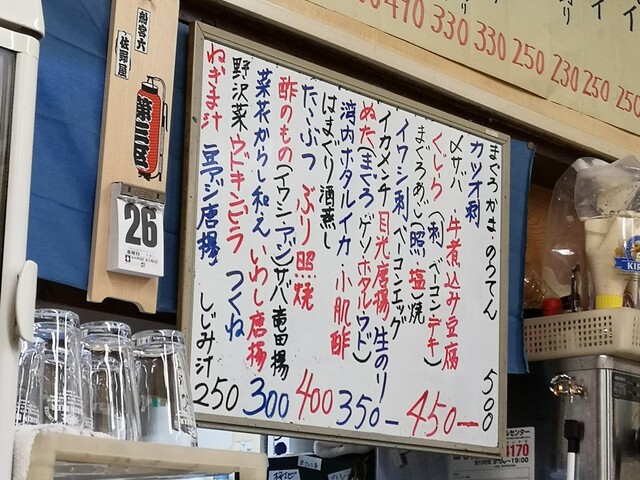 410 330 330 250 230 250 250
まぐろかま・のうてん 500
カツオ刺
〆サバ 牛煮込み豆腐
くじら(刺・ベーコン・テキ)
まぐろあぶし(照・塩)焼 450
イワシ刺 ベーコンエッグ
イカメンチ 目光唐揚 生のり
ぬた(まぐろ・ゲソ・ホタル・ウド)
湾内ホタルイカ 小肌酢 350
はまぐり酒蒸し
たこぶつ ぶり照焼 400
酢のもの(イワシ・アジ) サバ竜田揚
菜花からし和え いわし唐揚 300
野沢菜 ウドキンピラ つくね
ねぎま汁 豆アジ唐揚 しじみ汁 250
船宮六
佐野屋
第三区
26
4170
9:00~19:00